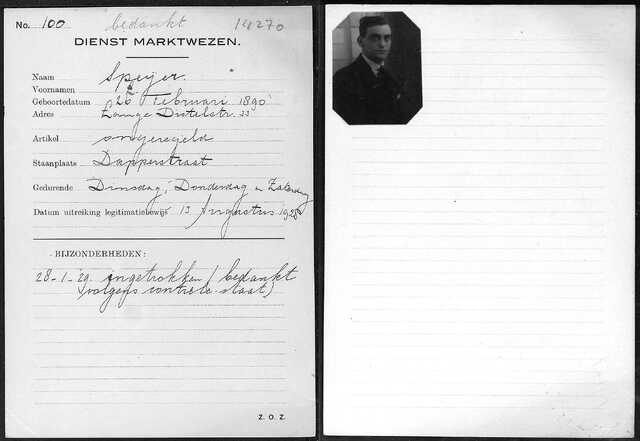 No. 100 bedankt 14270
DIENST MARKTWEZEN.
Naam Speijer.
Voornamen
Geboortedatum 26 Februari 1890
Adres Lange Distelstr. 33
Artikel ongeregeld
Staanplaats Dapperstraat
Gedurende Dinsdag, Donderdag en Zaterdag
Datum uitreiking legitimatiebewijs 13 Augustus 1928
BIJZONDERHEDEN:
28-1-'29. ingetrokken / bedankt
(volgens controle-staat)
Z. O. Z.